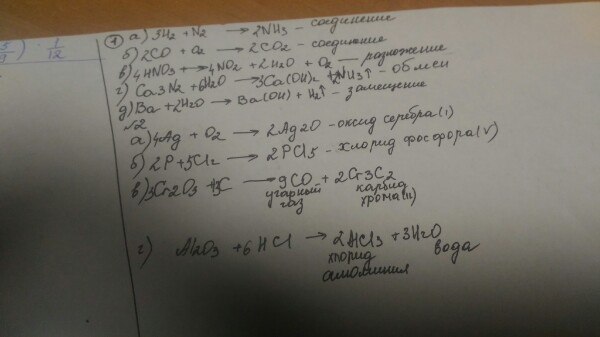 5/9) · 1/12
① а) 3H2 + N2 → 2NH3 - соединение
б) 2CO + O2 → 2CO2 - соединение
в) 4HNO3 → 4NO2 + 2H2O + O2 — разложение
г) Ca3N2 + 6H2O → 3Ca(OH)2 + 2NH3↑ - обмен
д) Ba + 2H2O → Ba(OH) + H2↑ - замещение
√2
а) 4Ag + O2 → 2Ag2O - оксид серебра (I)
б) 2P + 5Cl2 → 2PCl5 - хлорид фосфора (V)
в) 3Cr2O3 + C → 9CO + 2Cr3C2
угарный газ карбид хрома(II)
г) Al2O3 + 6HCl → 2AlCl3 + 3H2O
хлорид вода
алюминия